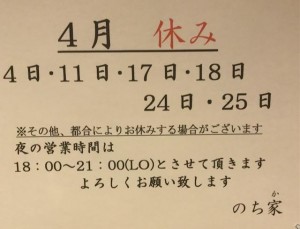 4月 休み
4日・11日・17日・18日
24日・25日
※その他、都合によりお休みする場合がございます
夜の営業時間は
18：00～21：00(LO)とさせて頂きます
よろしくお願い致します
か
のち家